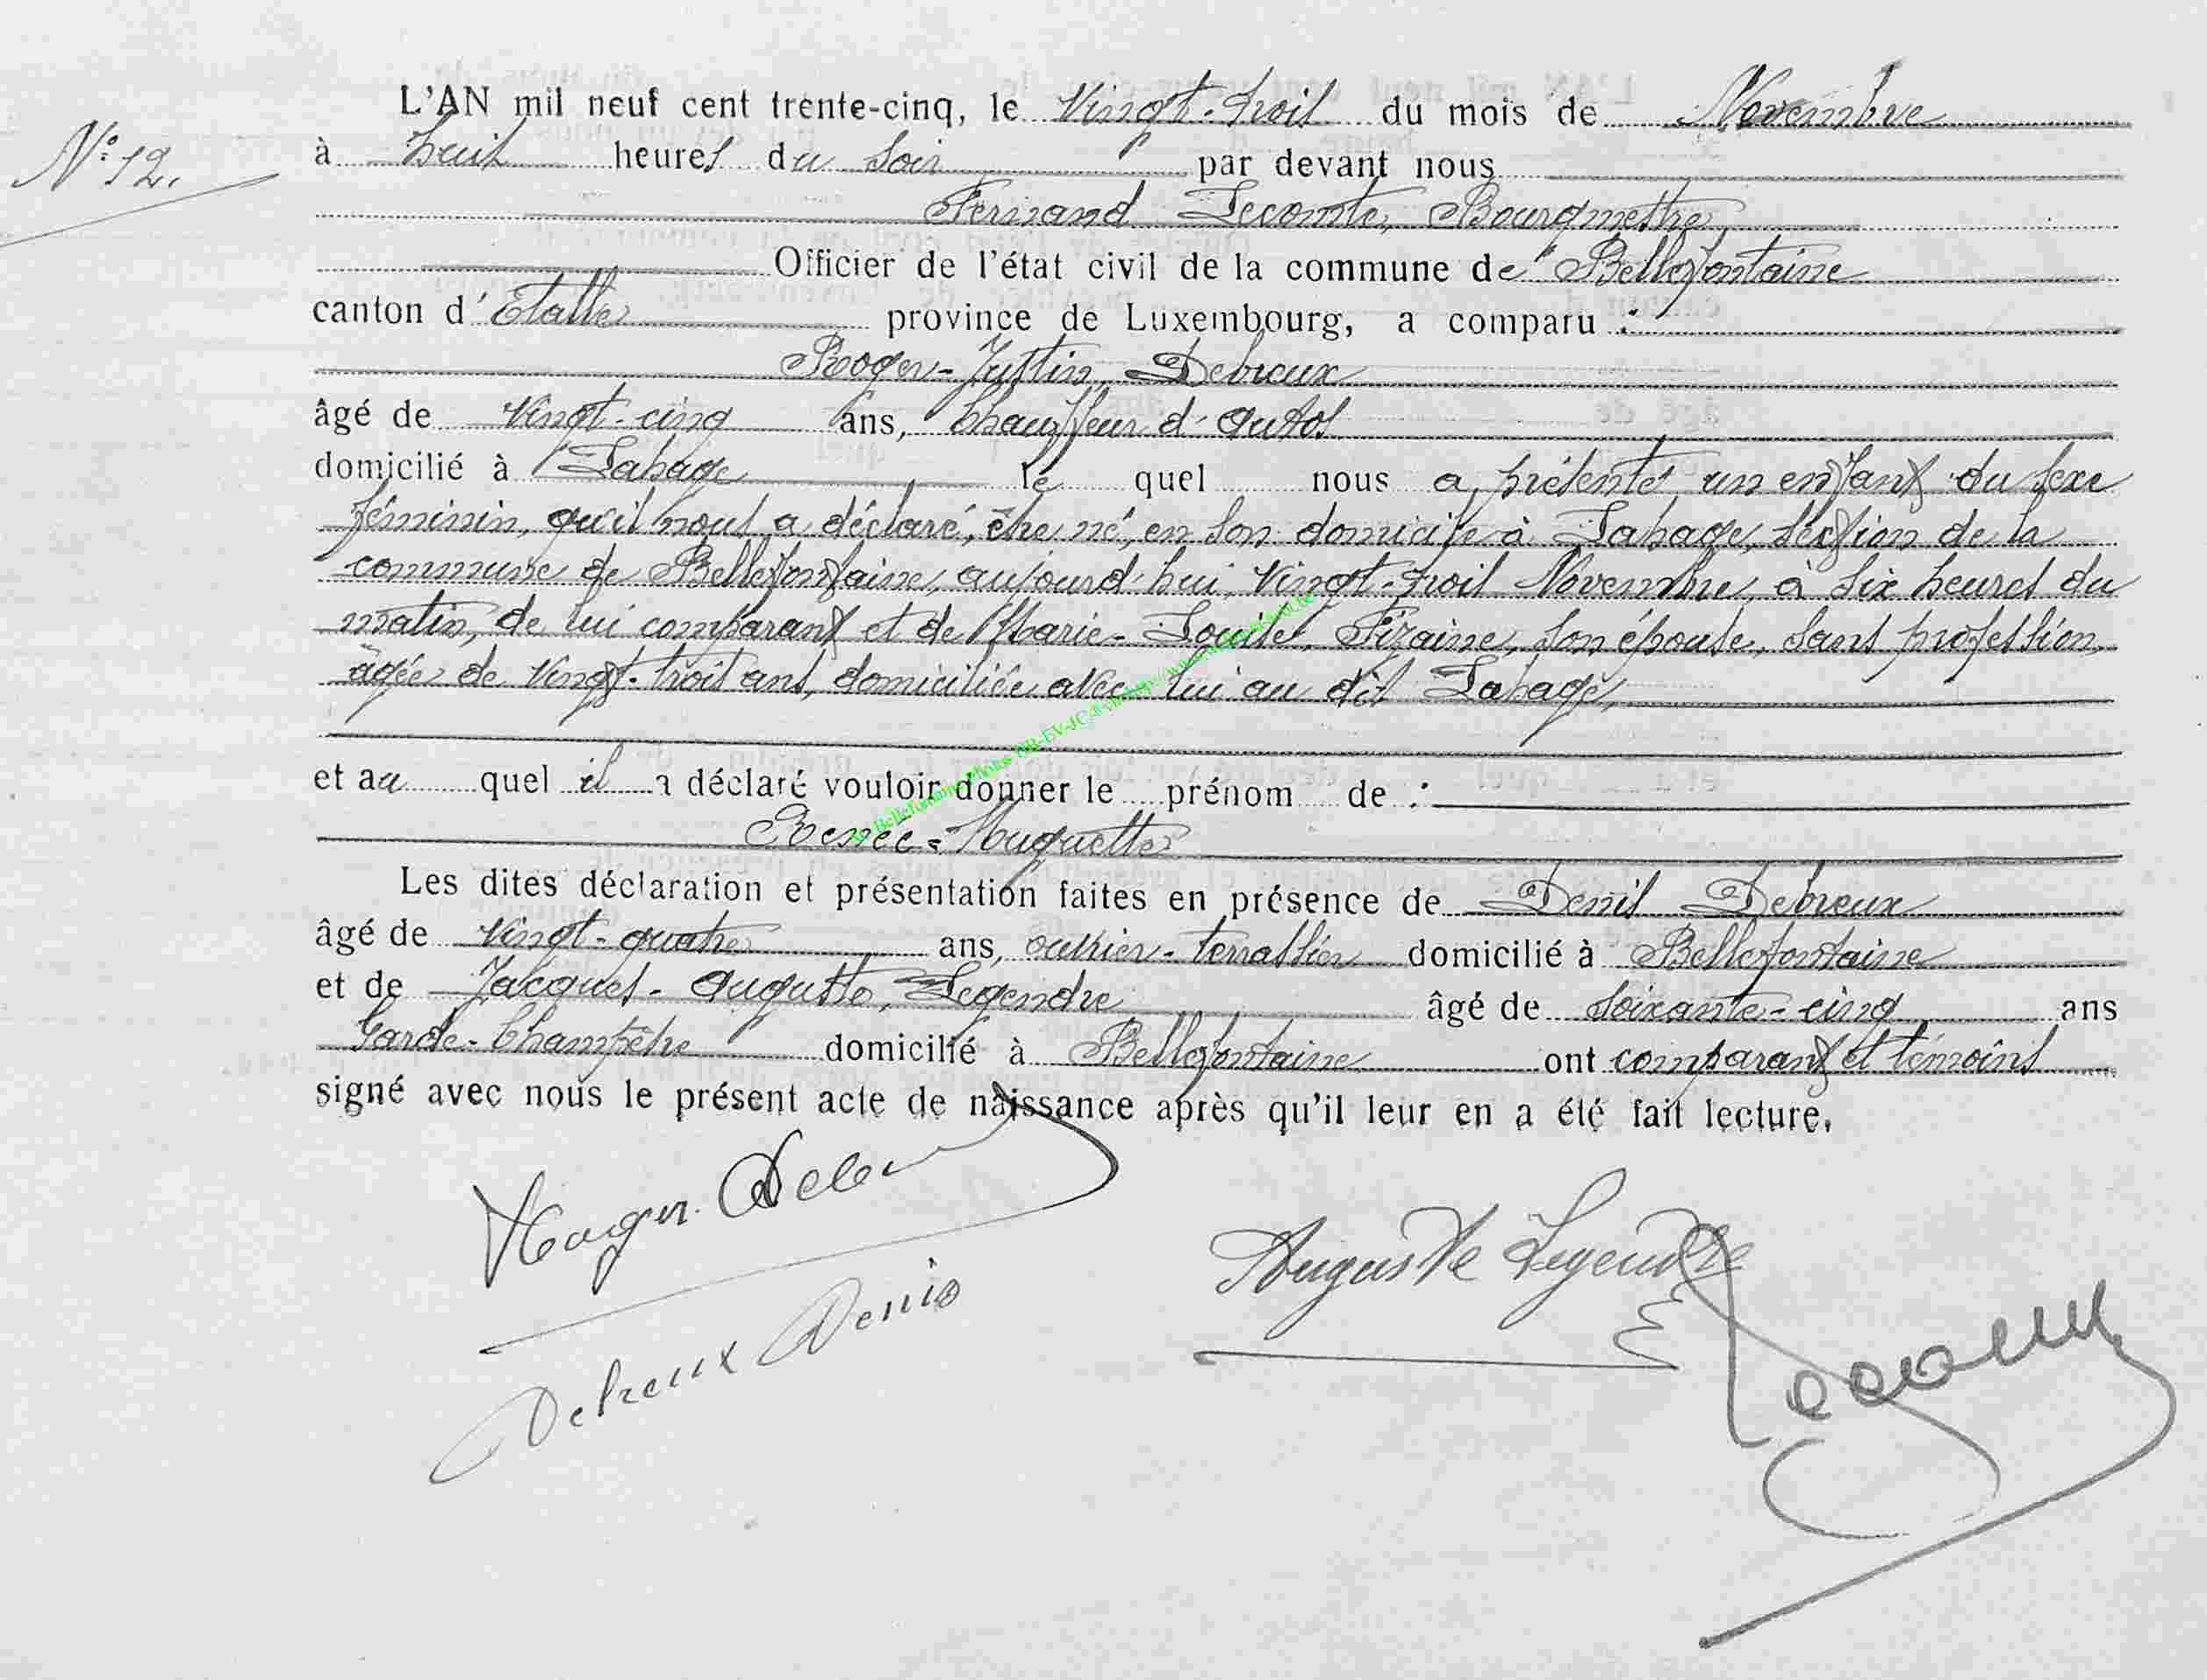 L'AN mil neuf cent trente-cinq, le Vingt-trois du mois de Novembre
N° 12.
à huit heures du soir par devant nous
Fernand Lecomte, Bourgmestre,
Officier de l'état civil de la commune de Bellefontaine
canton d'Etalle province de Luxembourg, a comparu :
Roger-Justin, Debreux
âgé de Vingt-cinq ans, Chauffeur d'autos
domicilié à Lahage le quel nous a présenté un enfant du sexe
féminin, qu'il nous a déclaré, être né, en son domicile à Lahage, section de la
commune de Bellefontaine, aujourd'hui, Vingt-trois Novembre, à six heures du
matin, de lui comparant et de Marie-Louise, Fizaine, son épouse, sans profession,
âgée de Vingt-trois ans, domiciliée avec lui au dit Lahage,
et au quel il a déclaré vouloir donner le prénom de :
Renée-Huguette
Les dites déclaration et présentation faites en présence de Denis Debreux
âgé de Vingt-quatre ans, ouvrier-terrassier domicilié à Bellefontaine
et de Jacques-Auguste, Legendre âgé de soixante-cinq ans
Garde-Champêtre domicilié à Bellefontaine ont comparant et témoins
signé avec nous le présent acte de naissance après qu'il leur en a été fait lecture.
Roger
Auguste Legendre
Debreux Denis
Lecomte